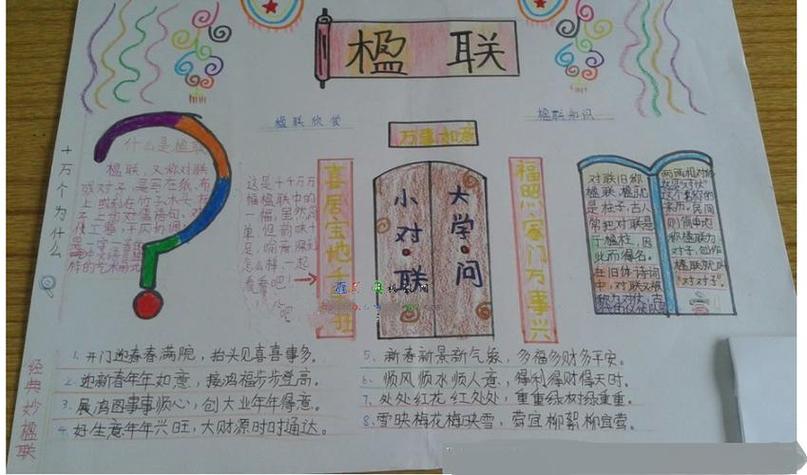 楹联
楹联欣赏
楹联知识
万事如意
十万个为什么
什么是楹联
楹联,又称对联
或对子,是写在纸、布
上或刻在竹子、木头、柱
子上的对偶语句,对
仗工整,平仄协调,
是一字一音的
这是千千万万
楹联中的
一幅,虽然简
单,但韵味十
足,
怎么样,一起
看看吧!
喜居宝地千
小对·联
大学·问
福照家门万事兴
对联旧称
楹联,楹就
是柱子,古人
常把对联悬
于楹柱,因
此而得名。
在旧体诗词
中,对联又被
称为对仗,
民间
则俗
称楹联为
对子,创作
楹联就叫
“对对子”。
经典妙楹联
1. 开门迎春春满院,抬头见喜喜事多。
2. 迎新春年年如意,接鸿福步步登高。
3. 展鸿图事事顺心,创大业年年得意。
4. 好生意年年兴旺,大财源时时通达。
5. 新春新景新气象,多福多财多平安。
6. 顺风顺水顺人意,得利得财得天时。
7. 处处红花红处处,重重绿枚绿重重。
8. 雪映梅花梅映雪,莺宜柳絮柳宜莺。